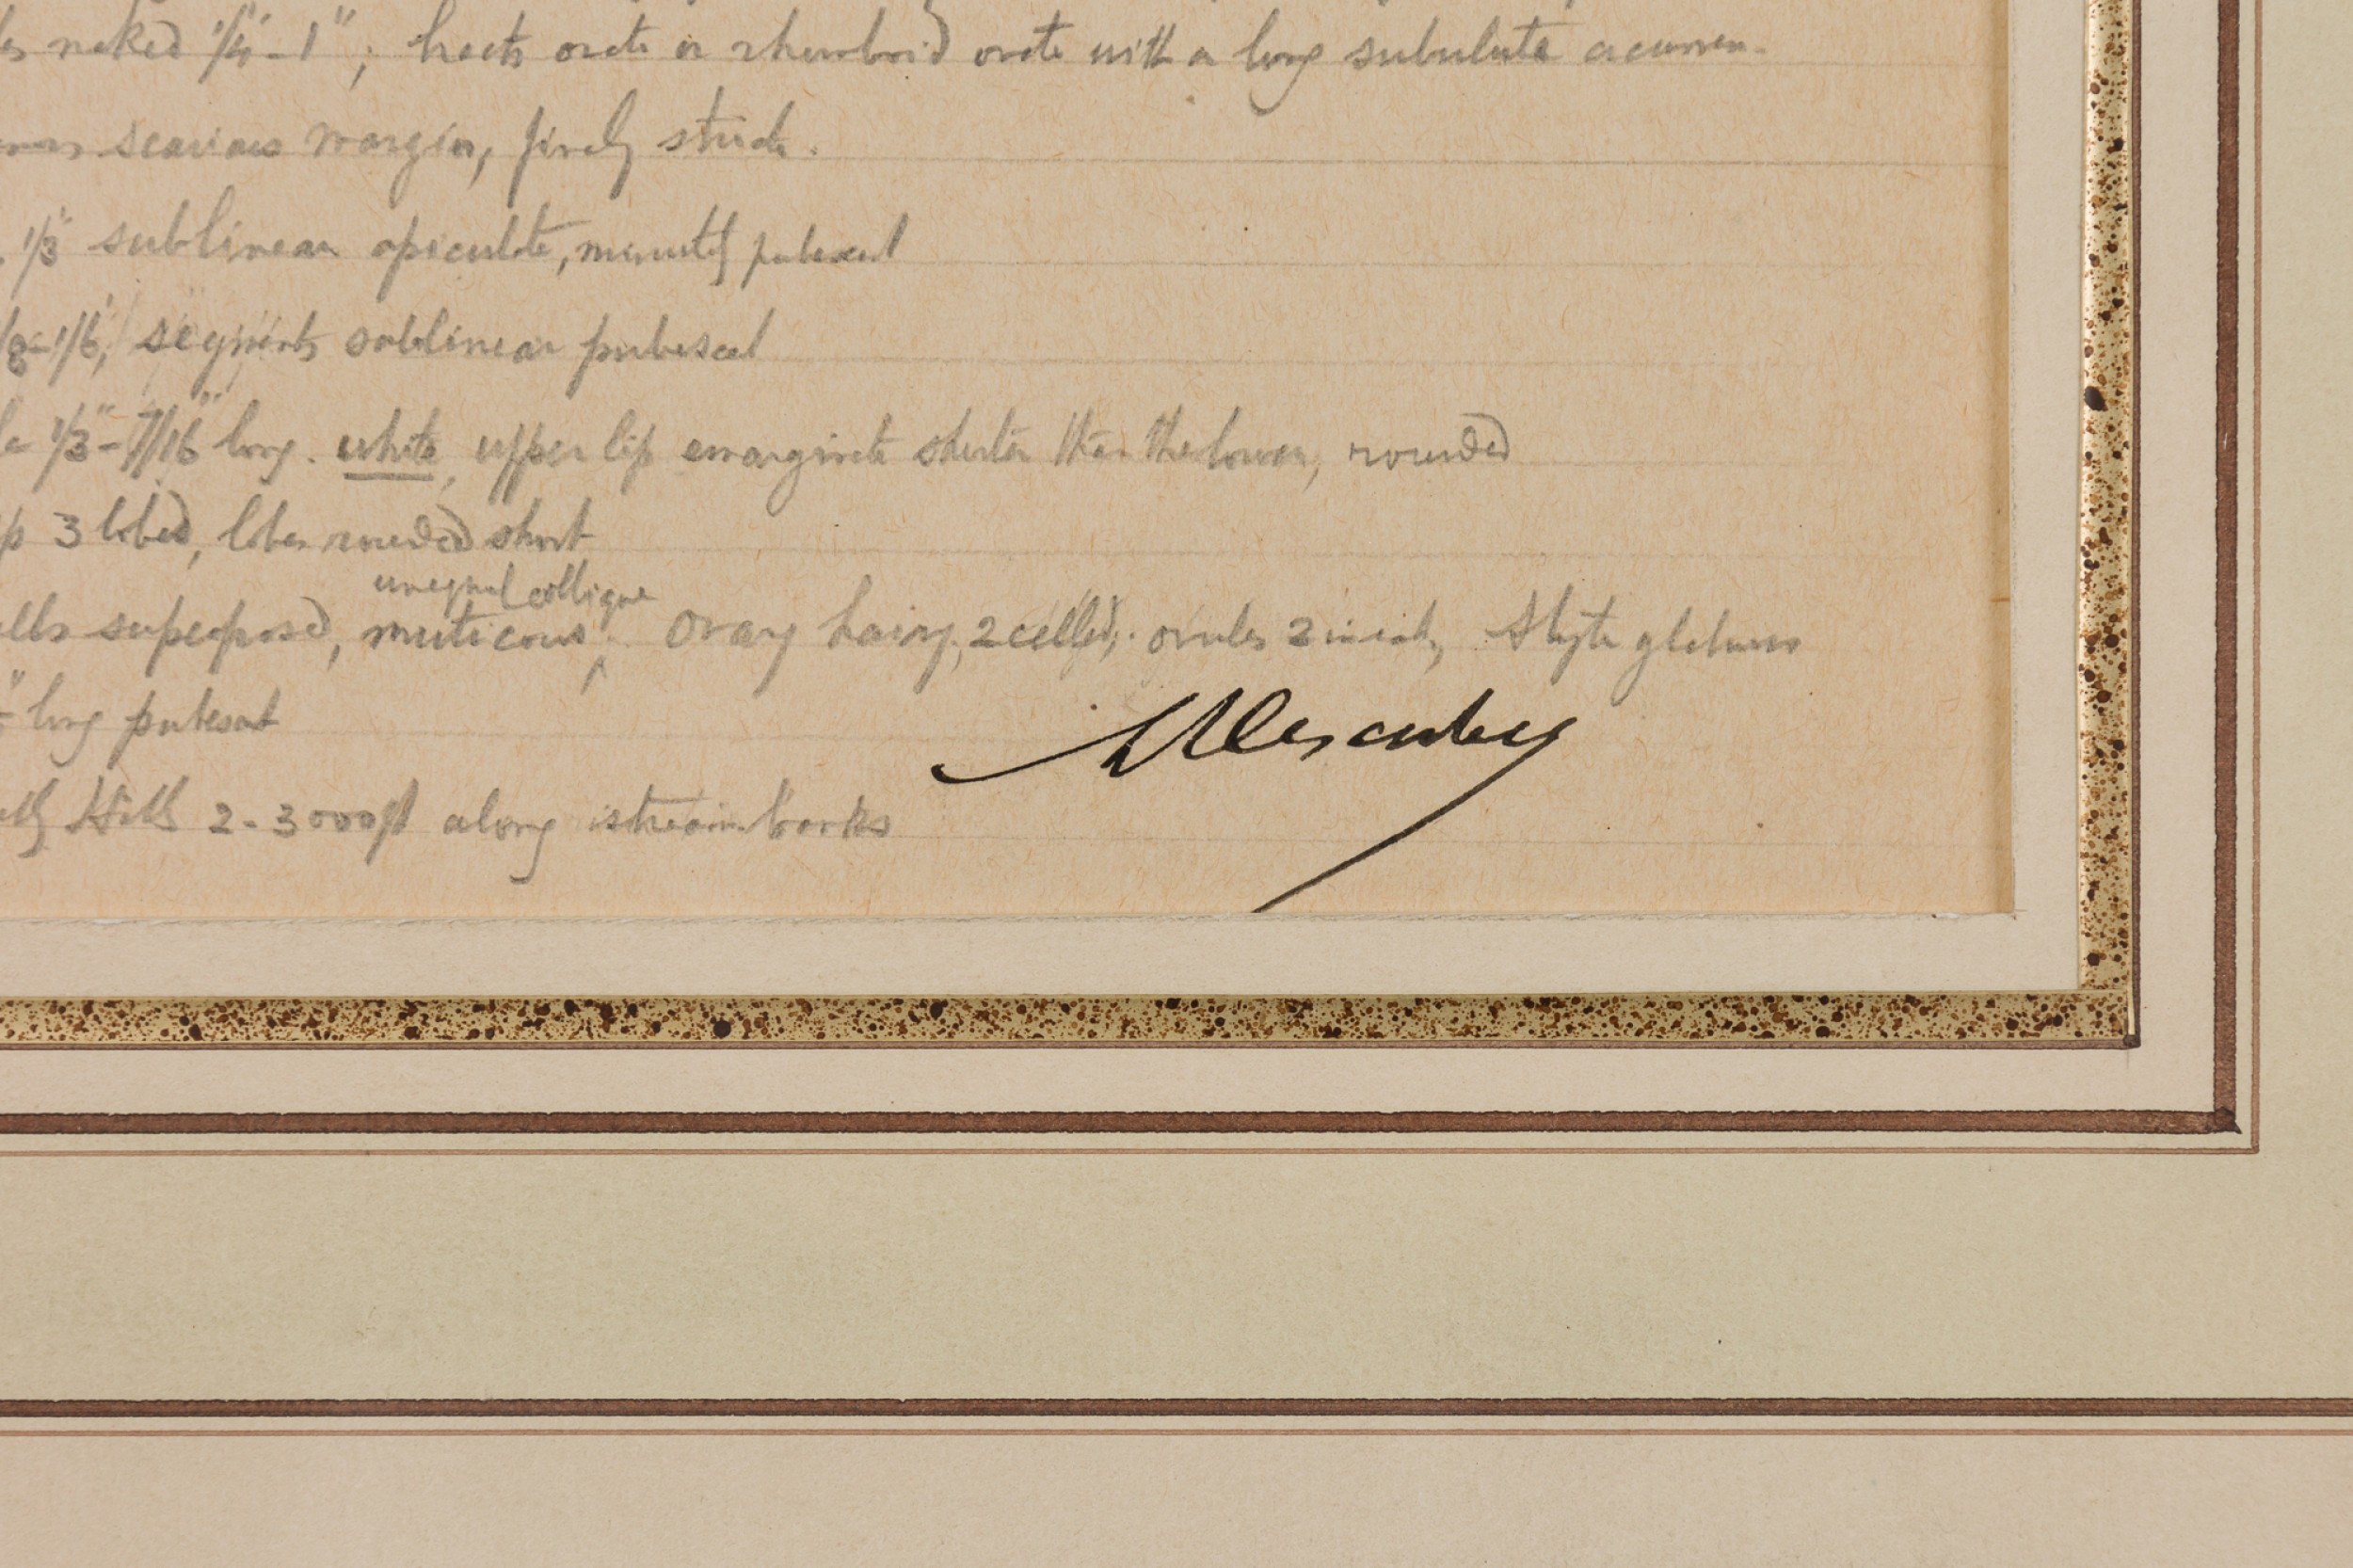 naked 1/4"-1"; bracts ovate or rhomboid ovate with a long subulate acumen-
scarious margin, finely striate.
1/3" sublinear apiculate, minutely pubescent
1/8-1/6, segments sublinear pubescent
1/3"-7/16" long. white, upper lip emarginate shorter than the lower, rounded
3 lobed, lobes rounded short
unequal oblique
superposed, muticous ^. Ovary hairy, 2 celled, ovules 2 in each, Style glabrous
long pubescent
Hills 2-3000ft along stream banks